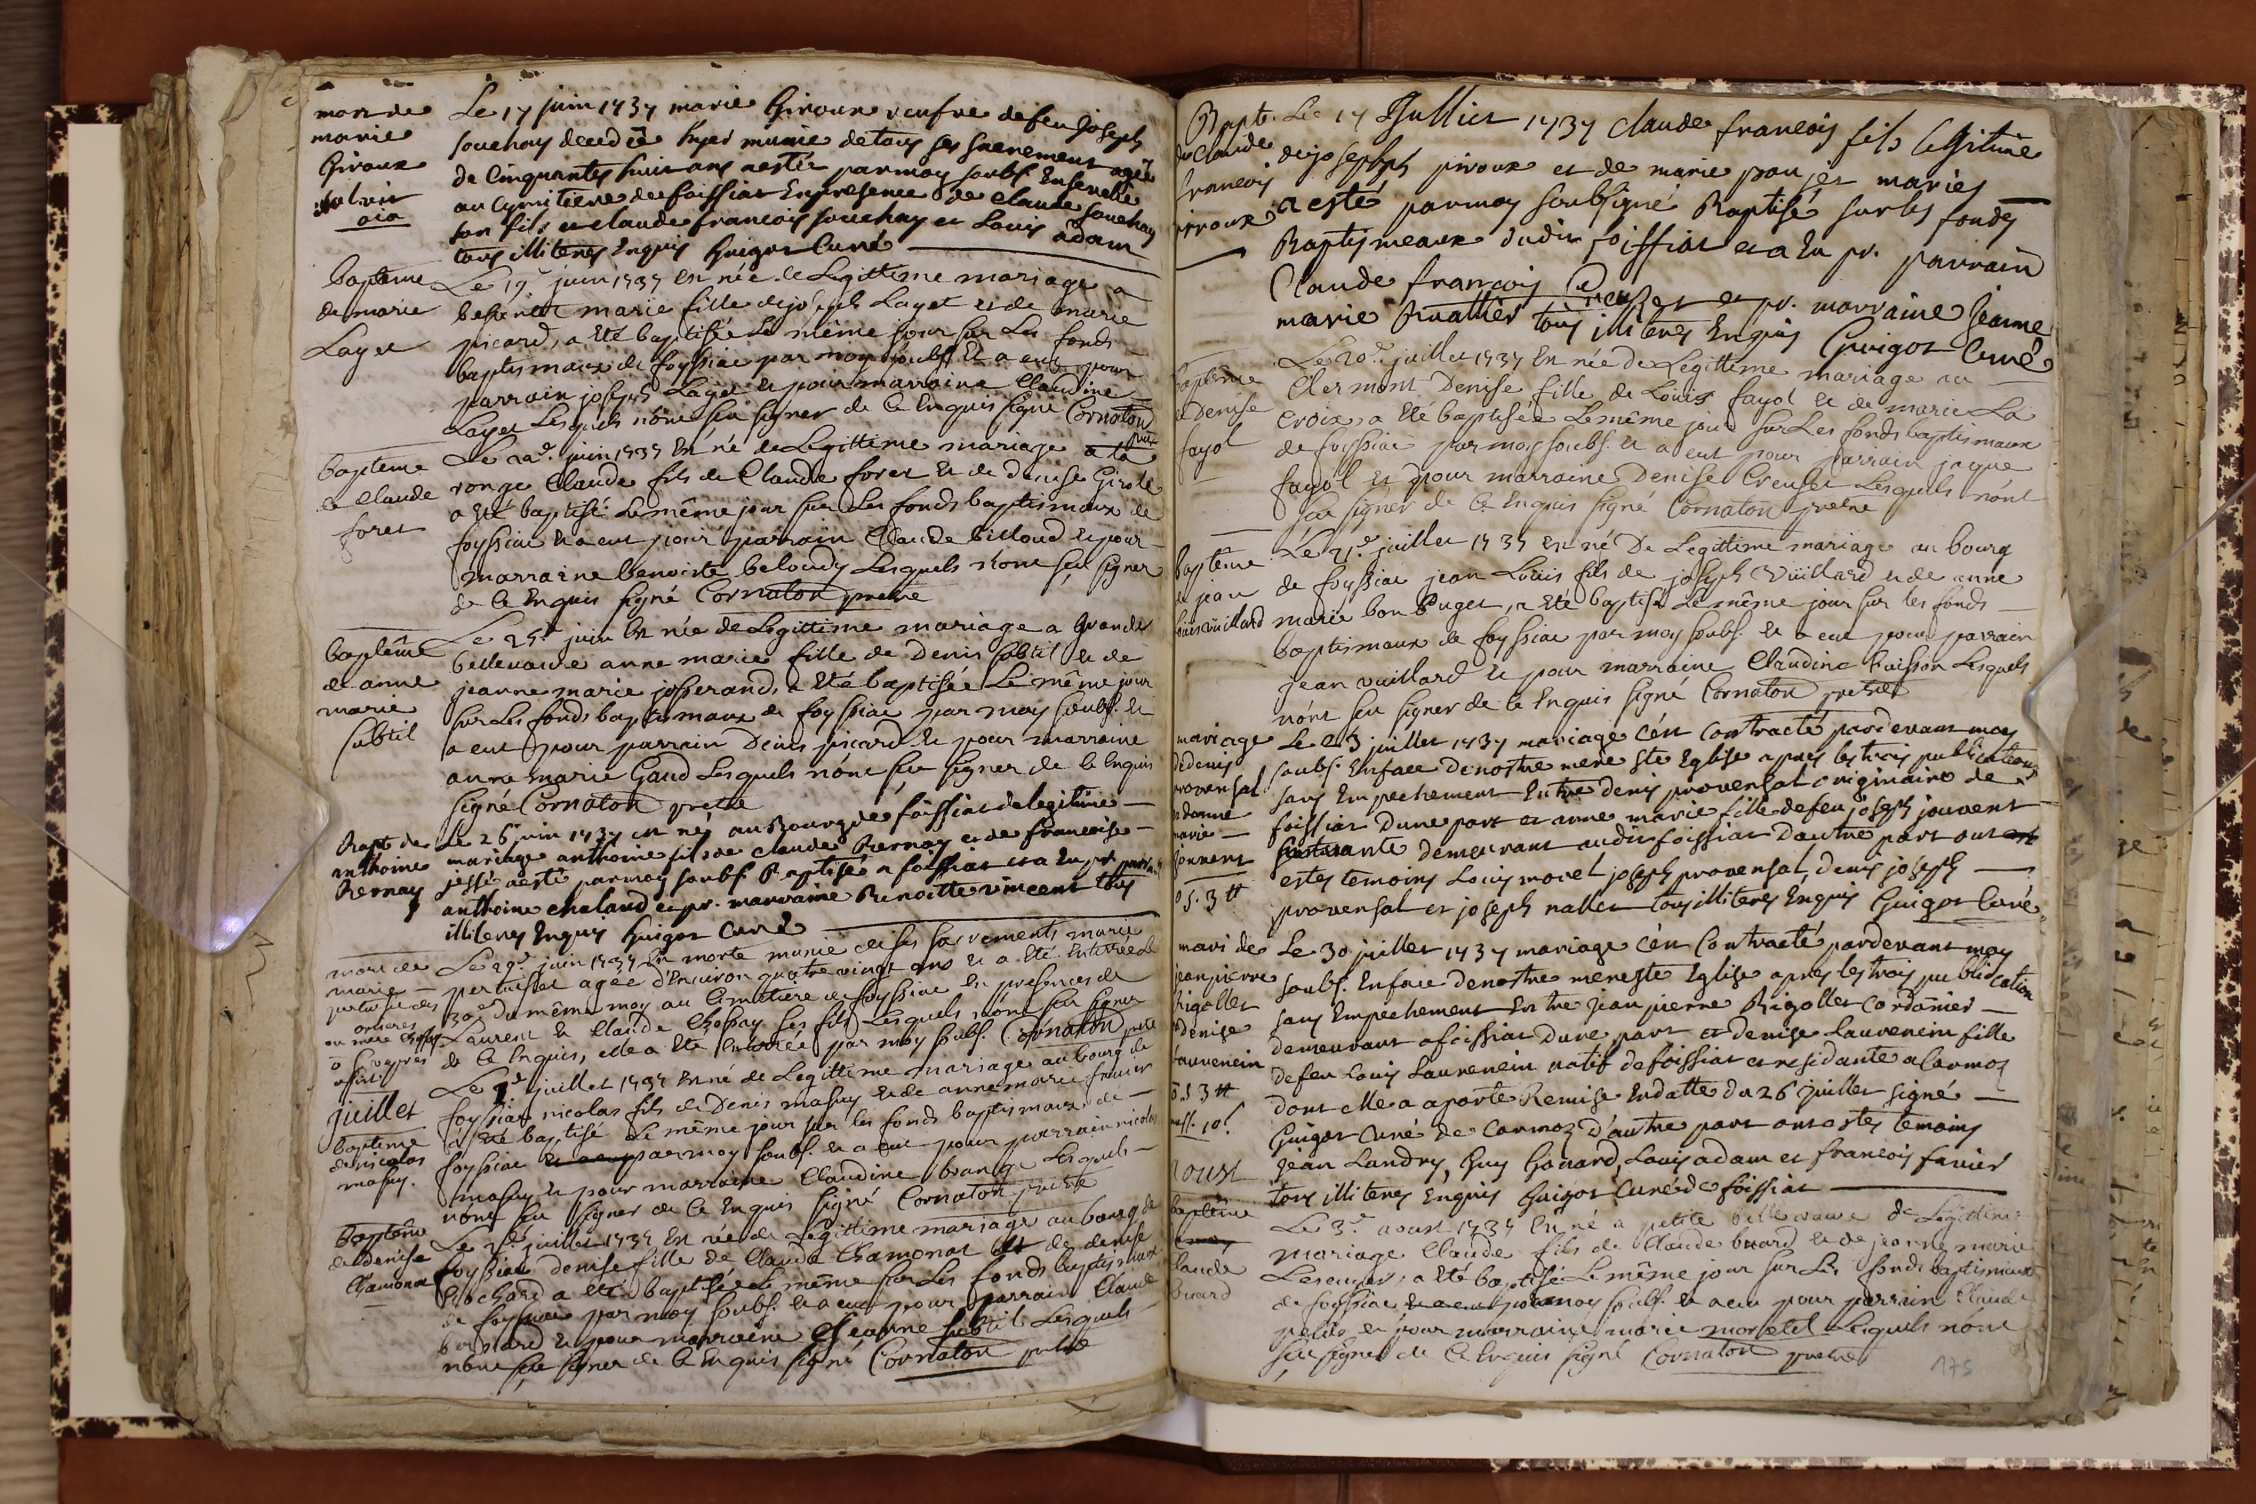 mort de
marie
Giroux
Le 17 juin 1737 marie Giroux veufve de feu Joseph
souchay decedée hyer munie de tous ses sacrement agée
de Cinquantes huit ans a esté par moy soubs. Ensevelie
au cymitiere de foissiat En presence de Claude souchay
son fils et claude francois souchay et Louis adam
tous illiteres Enquis Guigot Curé
baptême
de marie
Layet
Le 19e juin 1737 est née de Legittime mariage a
marie fille de joseph Layet et de marie
picard, a été baptisée le même jour sur Les fonds
baptismaux de foyssiac par moy soubs. Et a eut pour
parrain joseph Layet et pour marraine Claudine
Layet Lesquels n'ônt sçu signer de ce Enquis signé Cornaton
pretre
baptême
de Claude
foret
Le 22e. juin 1737 Est né de Legittime mariage a la
ronge Claude fils de Claude foret et de denise Girole
a été baptisé Le même jour sur Les fonds baptismaux de
foyssiac et a eut pour parrain Claude billoud et pour
marraine benoiste beloudy Lesquels n'ont sçu signer
de ce Enquis signé Cornaton pretre
baptême
de anne
marie
subtil
Le 25e juin Est née de Legittime mariage a Grande
bellevavre anne marie fille de Denis subtil et de
jeanne marie josserand, a été baptisée Le même jour
sur Les fonds baptismaux de foyssiac par moy soubs. et
a eut pour parrain Denis picard et pour marraine
anne marie Gaud Lesquels n'ônt sçu signer de ce Enquis
signé Cornaton pretre
Bapt. de
anthoine
Bernay
Le 26 juin 1737 est né au Bourg de foissiat de legitime
mariage anthoine fils de claude Bernay et de francoise
jessé a esté par moy soubs. Baptisé a foissiat et a Eu pr. parrain
anthoine chaland et pr. marraine Benoitte vincent tous
illiteres Enquis Guigot Curé
mort de
marie
pertuiset
Le 29e. juin 1737 Est morte munie de ses sacrements marie
pertuiset agée d'Environ quatre vingt ans et a été Enterrée Le
30e du même moy au Cimetiere de foyssiac En presences de
Laurent et Claude Chossay ses fils Lesquels n'ônt sçu signer
de ce Enquis, elle a été Enterrée par moy soubs. Cornaton pretre
juillet
baptême
de nicolas
masuy.
Le 1e juillet 1737 Est né de Legittime mariage au bourg de
foyssiat nicolas fils de Denis masuy et de anne marie favier
a été baptisé Le même jour sur les fonds baptismaux de
foyssiac par moy soubs. et a eut pour parrain nicolas
masuy et pour marraine Claudine brange Lesquels
n'ônt sçu signer de ce Enquis signé Cornaton pretre
baptême
de denise
Chamonat
Le 2e juillet 1737 Est née de Legittime mariage au bourg de
foyssiac denise fille de Claude Chamonat Et de denise
Brochard a été baptisée le même sur Les fonds baptismaux
de foyssiac par moy soubs. et a eut pour parrain Claude
brossard et pour marraine jeanne subtil Lesquels
n'ônt sçu signer de ce Enquis signé Cornaton pretre
Bapt.
de Claude
francois
piroux
Le 17 Jullier 1737 Claude francois fils legitime
de joseph piroux et de marie poujet mariés
a esté par moy soubsigné Baptisé sur les fonds
Baptismeaux dudit foissiat et a Eu pr. parrain
Claude francois Creuset et pr. marraine Jeanne
marie Ruallier tous illiteres Enquis Guigot Curé
baptême
de Denise
fayol
Le 20e. juillet 1737 Est née de Legittime mariage au
Clermont Denise fille de Louis fayol et de marie La
Croix, a été baptisée Le même jour sur Les fonds baptismaux
de foyssiac par moy soubs. et a eut pour parrain jaque
fayol et pour marraine Denise Creuset Lesquels n'ônt
sçu signer de ce Enquis signé Cornaton pretre
baptême
de jean
Louis vuillard
Le 21e. juillet 1737 est né De Legittime mariage au bourg
de foyssiac jean Louis fils de joseph vuillard et de anne
marie bon Puget, a été baptisé Le même jour sur les fonds
baptismaux de foyssiac par moy soubs. et a eut pour parrain
jean vuillard et pour marraine Claudine buisson Lesquels
n'ônt sçu signer de ce Enquis signé Cornaton pretre
mariage
de denis
provensal
et anne
marie
jouvent
Le 23 juillet 1737 mariage s'est Contracté pardevant moy
soubs. En face de nostre mere ste Eglise apres les trois publications
sans Empechement Entre denis provensal originaire de
foissiat d'une part et anne marie fille de feu joseph jouvent
demeurant audit foissiat d'autre part ont
estes temoins Louis morel joseph provensal, denis joseph
provensal et joseph nallet tous illiteres Enquis Guigot Curé
mari de
jean pierre
Rigollet
denise
Laurencin
Le 30 juillet 1737 mariage s'est Contracté pardevant moy
soubs. En face de nostre mere ste Eglise apres les trois publication
sans Empechement Entre Jean pierre Rigollet Cordonier
demeurant a foissiat d'une part et denise Laurencin fille
de feu Louis Laurencin natif de foissiat et residante a Cormoz
dont elle a aporté Remise En datte du 26 juillet signé
Guigot Curé de Cormoz d'autre part ont estes temoins
Jean Landry, Guy Gonard, Louis adam et francois favier
tous illiteres Enquis Guigot Curé de foissiat
aoust
baptême
claude
buard
Le 3e. aoust 1737 Est né a petite bellevavre de Legittime
mariage Claude fils de Claude buard et de jeanne marie
Lescuyer, a été baptisé Le même jour sur Les fonds baptismaux
de foyssiac par moy soubs. et a eu pour parrain Claude
petit et pour marraine marie morelet Lesquels n'ont
sçu signer de ce Enquis signé Cornaton pretre
175